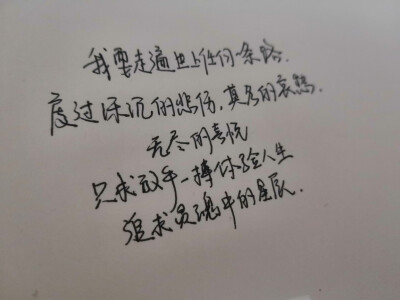 我要走遍世上任何一条路.
度过深沉的悲伤,莫名的哀愁.
无尽的喜悦
只求放手一搏体验人生
追求灵魂中的星辰.